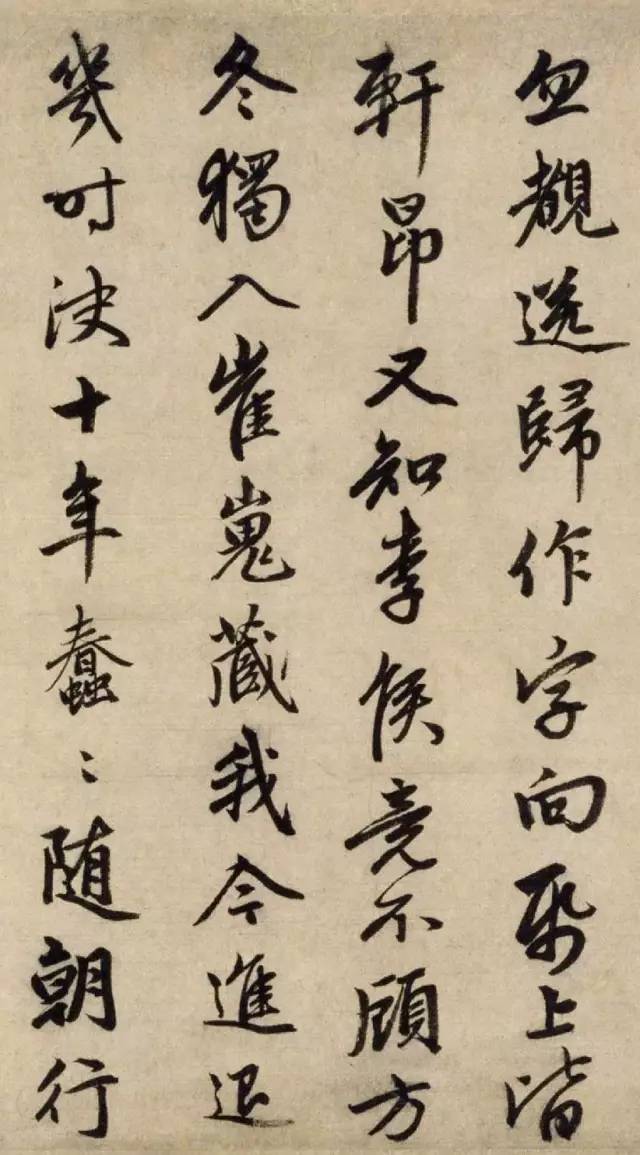 忽覩送歸作字向帋上皆
軒昂又知李侯竟不顧方
冬獨入崔嵬藏我今進退
幾时決十年蠢〻随朝行